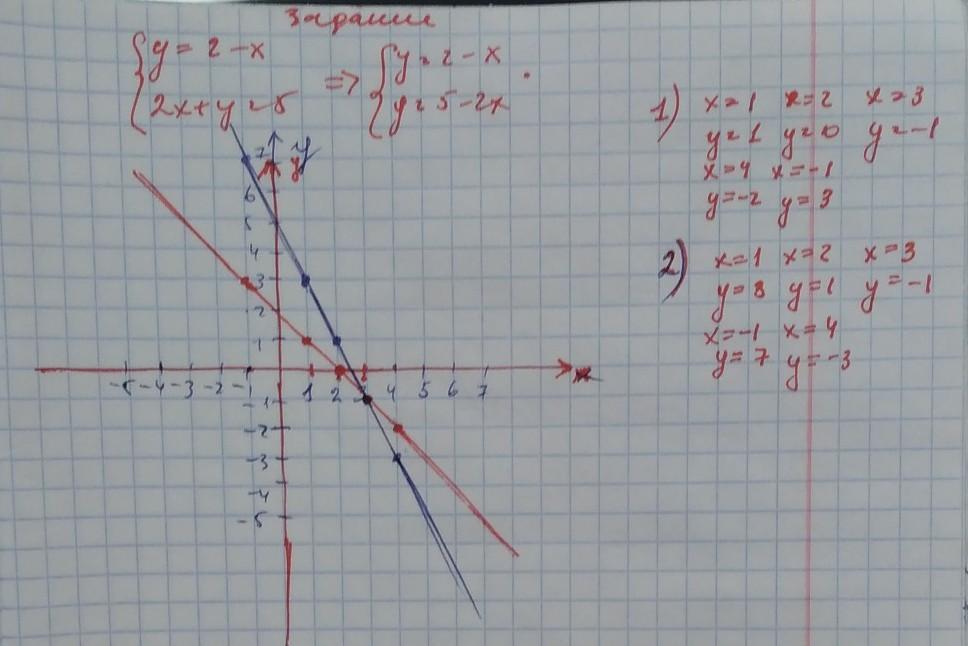 Задание
y = 2 - x ⇒ y = 2 - x
2x + y = 5 y = 5 - 2x .
1) x = 1 x = 2 x = 3
y = 1 y = 0 y = -1
x = 4 x = -1
y = -2 y = 3
2) x = 1 x = 2 x = 3
y = 3 y = 1 y = -1
x = -1 x = 4
y = 7 y = -3
7 y
y
6
5
4
3
2
1
-5 -4 -3 -2 -1 1 2 3 4 5 6 7 x
-1
-2
-3
-4
-5